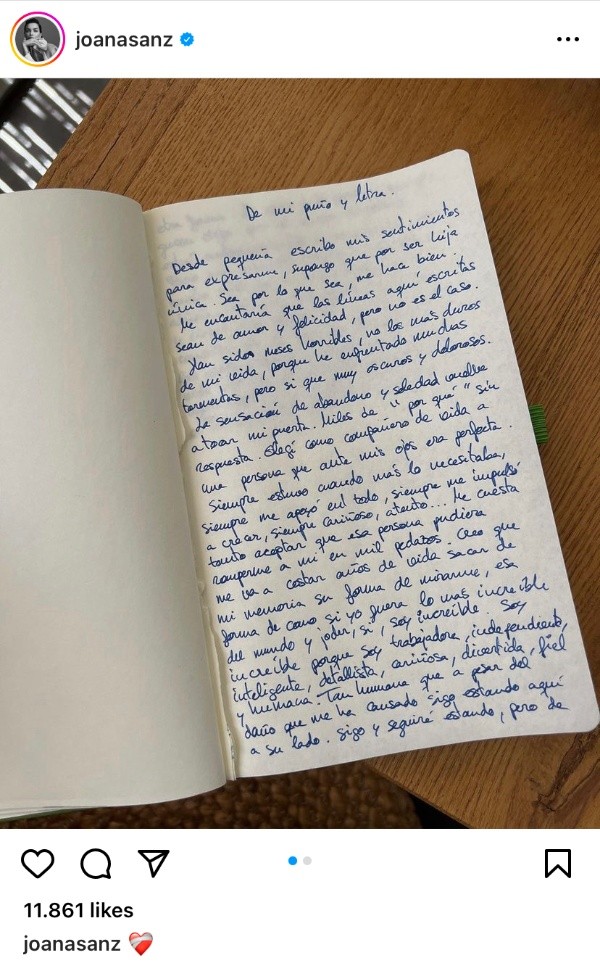 joanasanz
De mi puño y letra.
Desde pequeña escribo mis sentimientos
para expresarme, supongo que por ser hija
única. Sea por lo que sea, me hace bien.
Me encantaría que las líneas aquí escritas
sean de amor y felicidad, pero no es el caso.
Han sidos meses horribles, no los más duros
de mi vida, porque he enfrentado muchas
tormentas, pero si que muy oscuros y dolorosos.
La sensación de abandono y soledad vuelve
a tocar mi puerta. Miles de "por qué" sin
respuesta. Elegí como compañero de vida a
una persona que ante mis ojos era perfecta.
Siempre estuvo cuando más lo necesitaba,
siempre me apoyó en todo, siempre me impulsó
a crecer, siempre cariñoso, atento... Me cuesta
tanto aceptar que esa persona pudiera
romperme a mi en mil pedazos. Creo que
me va a costar años de vida sacar de
mi memoria su forma de mirarme, esa
forma de como si yo fuera lo más increíble
del mundo y joder, si, soy increíble. Soy
increíble porque soy trabajadora, independiente,
inteligente, detallista, cariñosa, divertida, fiel
y humana. Tan humana que a pesar del
daño que me ha causado sigo estando aquí
a su lado. Sigo y seguiré estando, pero de
11.861 likes
joanasanz ❤️‍🩹